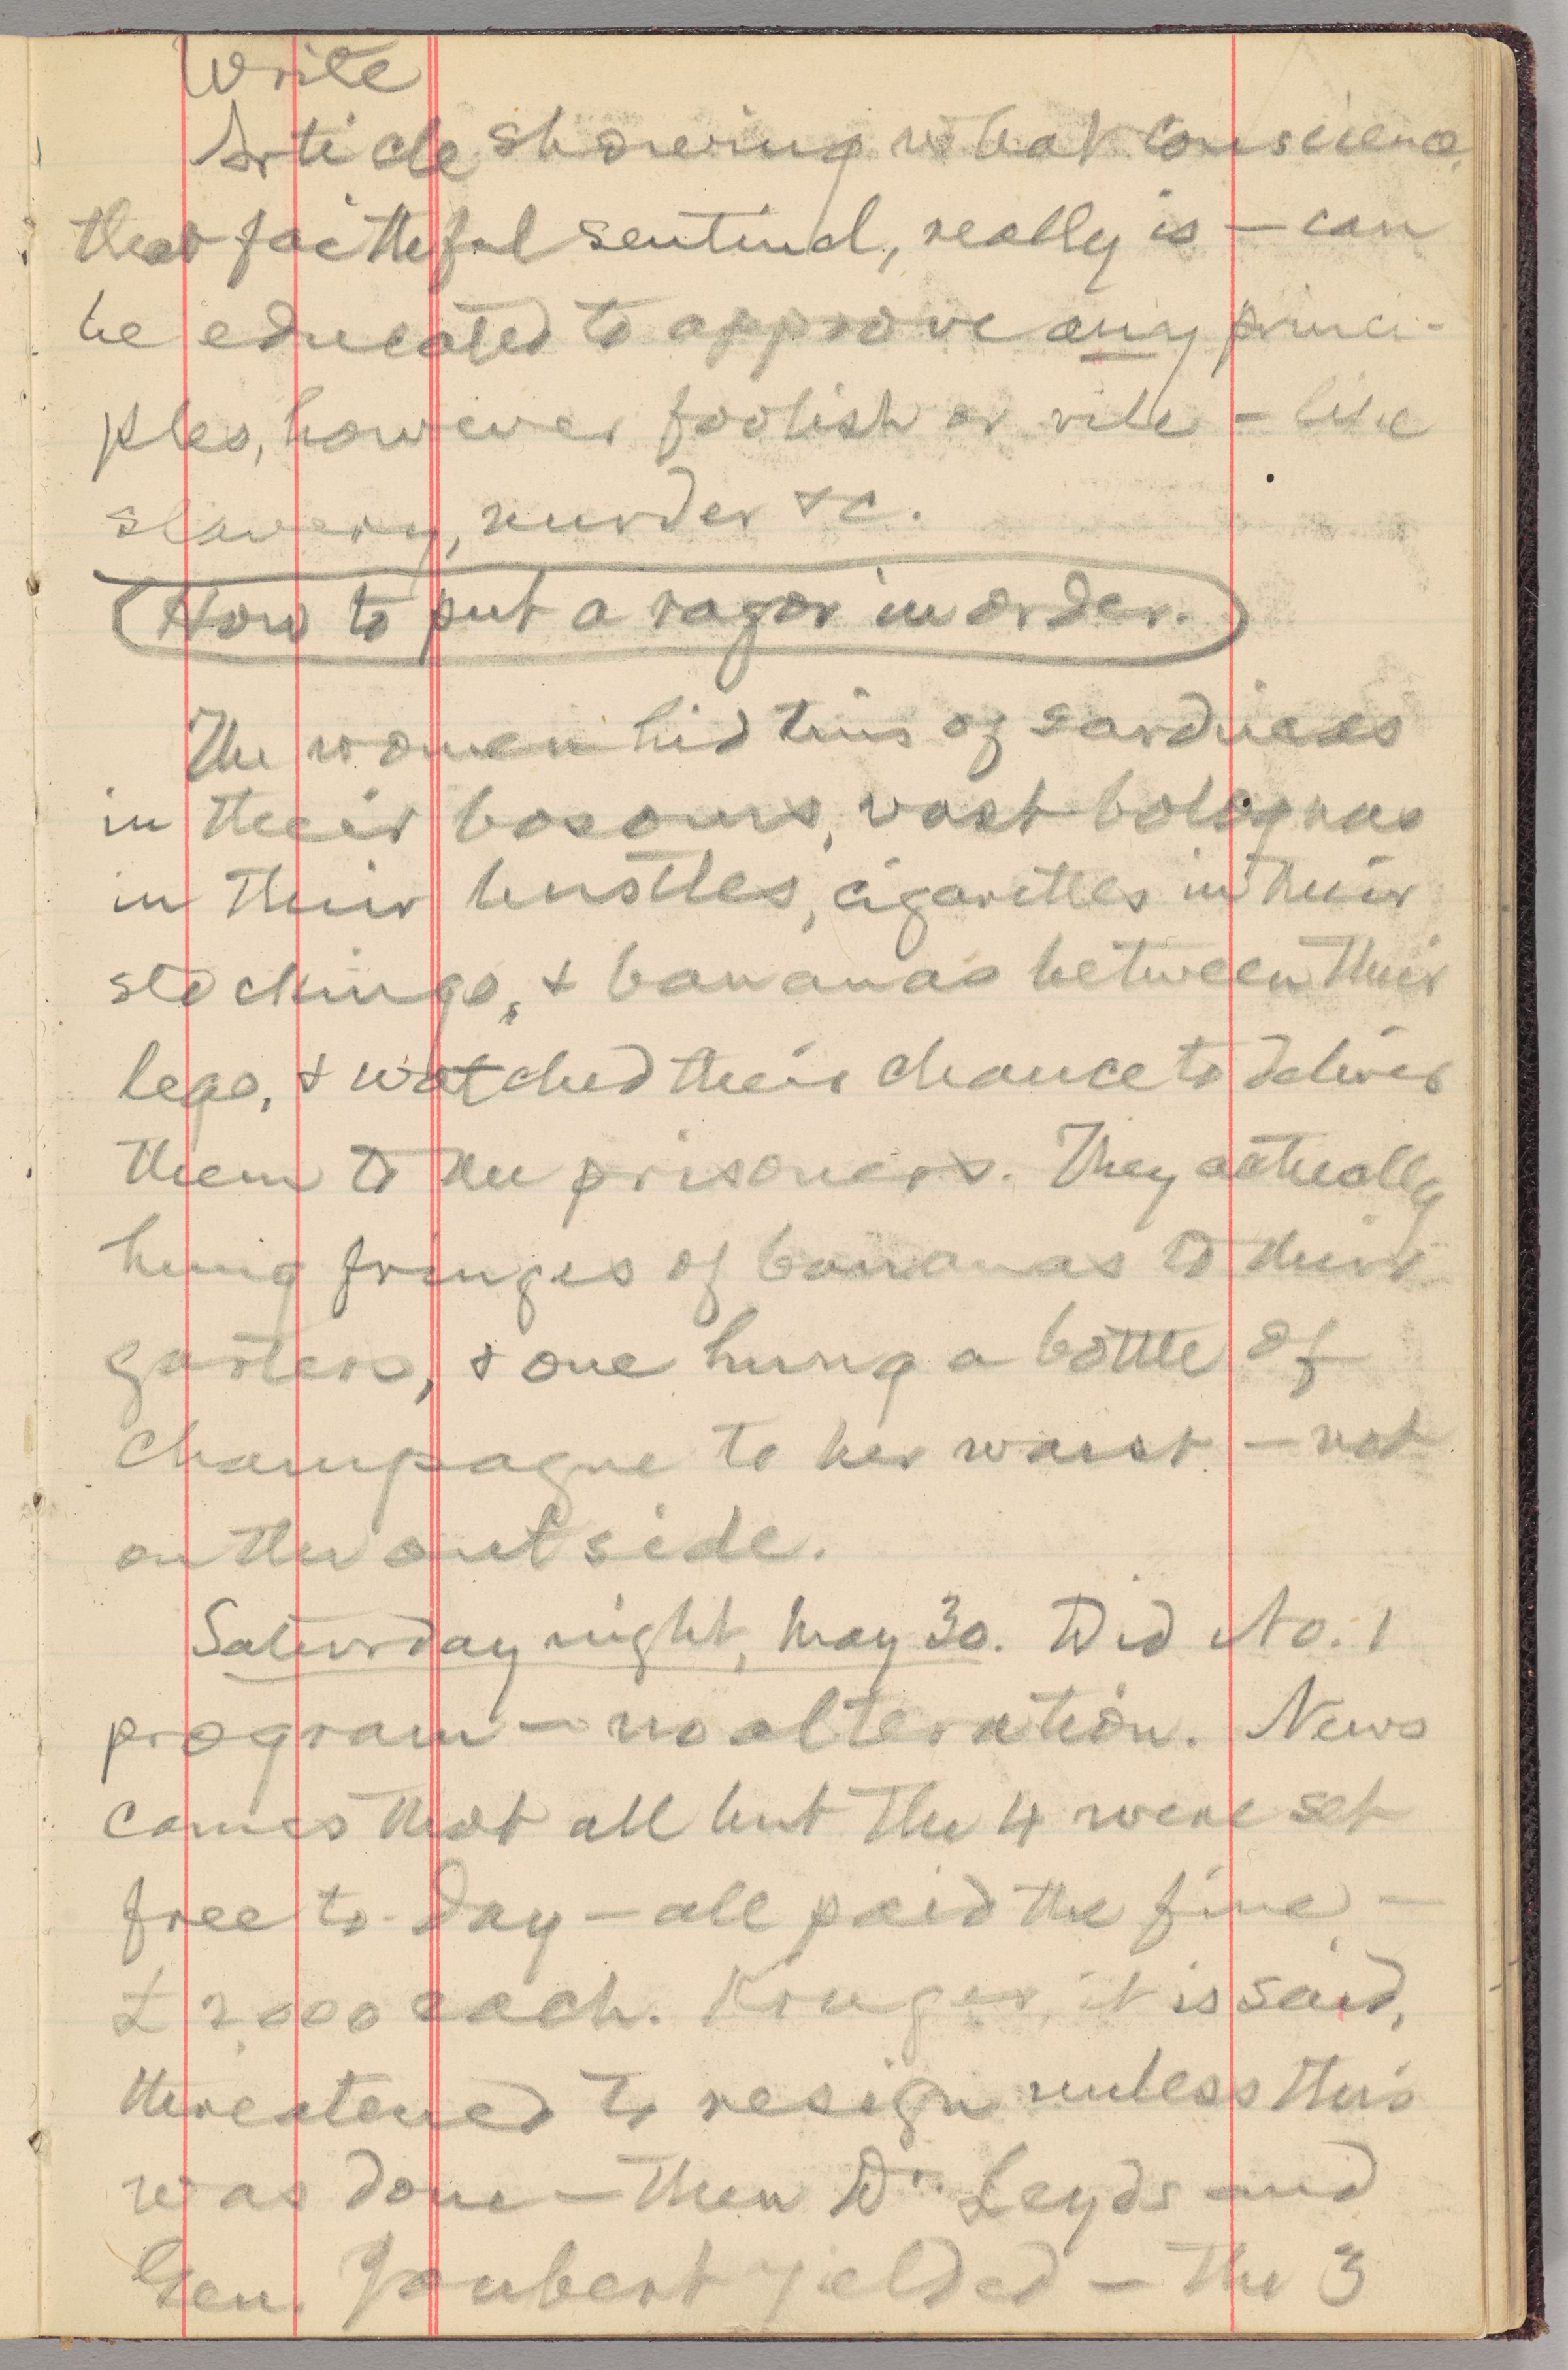 Write
Article showing what conscience,
that faithful sentinel, really is — can
be educated to approve any princi-
ples, however foolish or vile — like
slavery, murder &c.
How to put a razor in order.
The women hid tins of sardines
in their bosoms, vast bolognas
in their bustles, cigarettes in their
stockings, & bananas between their
legs, & watched their chance to deliver
them to the prisoners. They actually
hung fringes of bananas to their
garters, & one hung a bottle of
champagne to her waist — not
on the outside.
Saturday night, May 30. Did No. 1
program — no alteration. News
comes that all but the 4 were set
free to-day — all paid the fine —
£2000 each. Kruger, it is said,
threatened to resign unless this
was done — then Dr. Leyds and
Gen. Joubert yielded — the 3